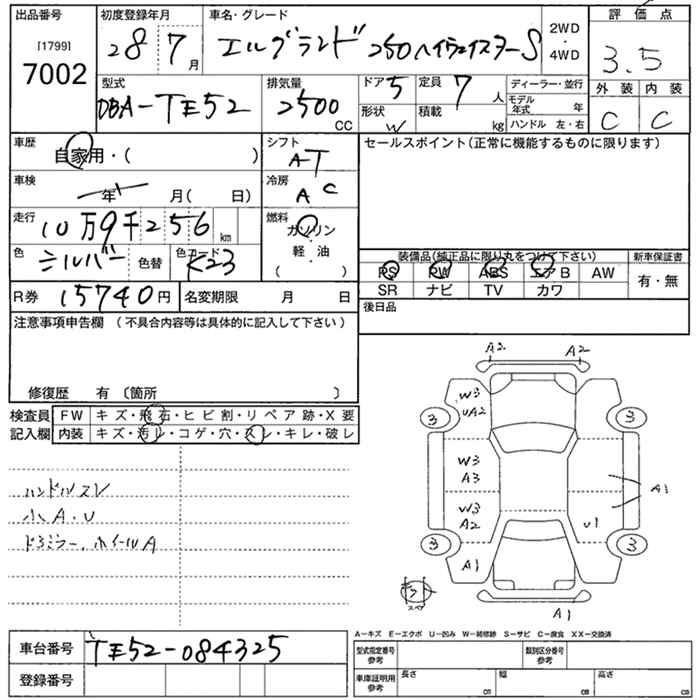 出品番号
[1799]
7002
初度登録年月
28 7月
車名・グレード
エルグランド 250ハイウェイスターS
2WD
・
4WD
評価点
3.5
型式
DBA-TE52
排気量
2500 CC
ドア 5
定員 7人
形状 W
積載 kg
ディーラー・並行
モデル年式 年
ハンドル 左・右
外装 内装
C C
車歴
自家用・( )
シフト
AT
セールスポイント(正常に機能するものに限ります)
車検
年 月( 日)
冷房
AC
走行
10万9千256 km
燃料
ガソリン
軽・油
( )
色
シルバー
色替
色カード
K23
装備品(純正品に限り丸をつけて下さい)
新車保証書
PS PW ABS エアB AW
有・無
SR ナビ TV カワ
R券 15740円
名変期限 月 日
後日品
注意事項申告欄 (不具合内容等は具体的に記入して下さい)
修復歴 有 〔箇所 〕
検査員
記入欄
FW キズ・飛石・ヒビ割・リペア跡・X要
内装 キズ・汚レ・コゲ・穴・スレ・キレ・破レ
ハンドルスレ
小A.U
ドアミラー、ホイールA
A2 A2
W3
UA2
3 3
W3
A3
A1
W3
A2
U1
3 3
A1
スペア
A1
A-キズ E-エクボ U-凹み W-補修跡 S-サビ C-腐食 XX-交換済
車台番号 TE52-084325
登録番号
型式指定番号
参考
類別区分番号
参考
車庫証明用
参考
長さ cm
幅 cm
高さ cm